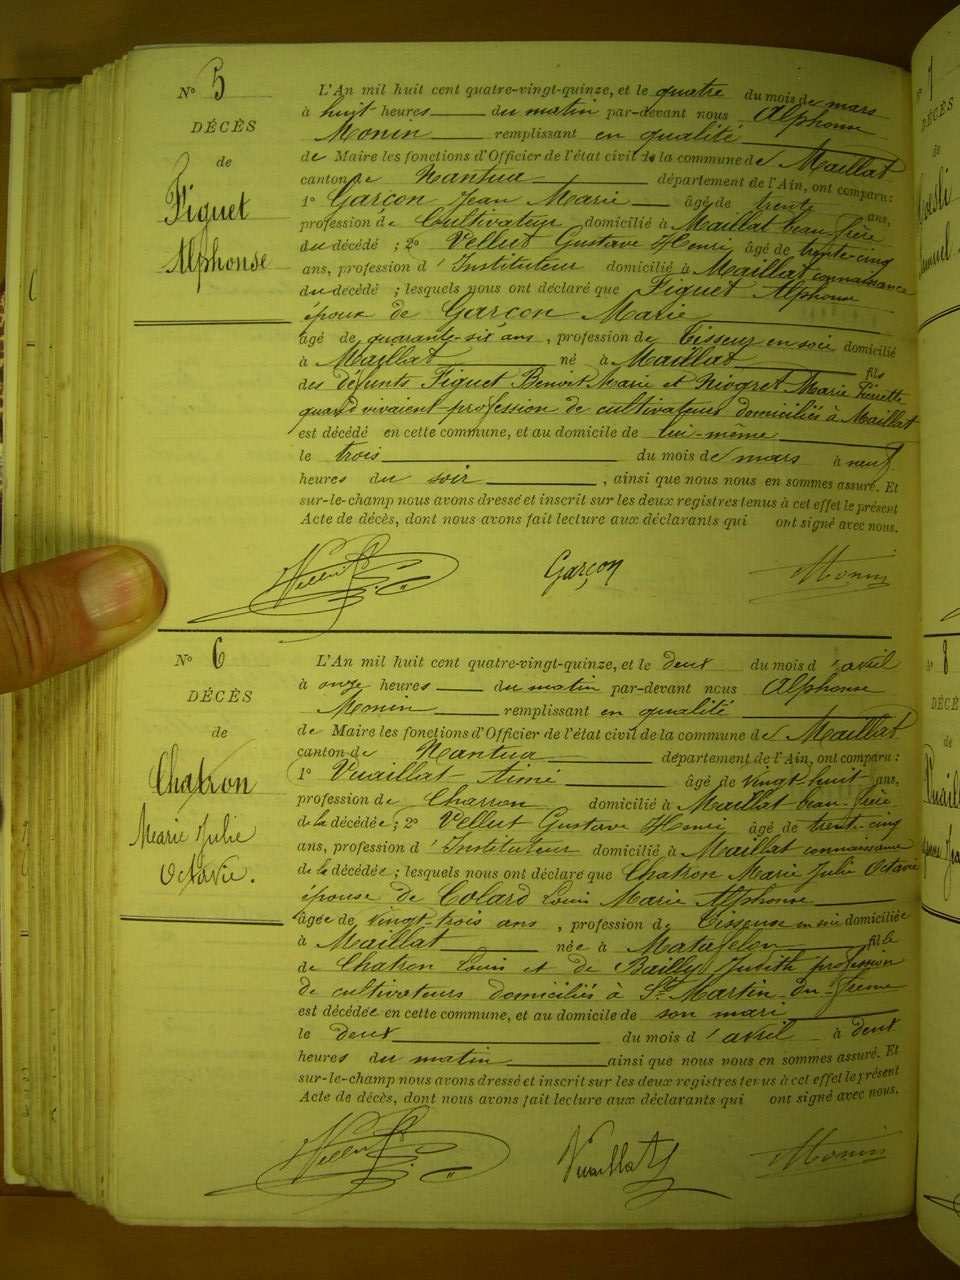 N° 5
DÉCÈS
de
Figuet
Alphonse
L'An mil huit cent quatre-vingt-quinze, et le quatre du mois de mars
à huit heures du matin par-devant nous Alphonse
Monin remplissant en qualité
de Maire les fonctions d'Officier de l'état civil de la commune de Maillat
canton de Nantua département de l'Ain, ont comparu:
1° Garçon Jean Marie âgé de trente ans,
profession de Cultivateur domicilié à Maillat beau-frère
du décédé ; 2° Vellut Gustave Henri âgé de trente-cinq
ans, profession d'Instituteur domicilié à Maillat connaissance
du décédé ; lesquels nous ont déclaré que Figuet Alphonse
époux de Garçon Marie
âgé de quarante-six ans, profession de Tisseur en soie domicilié
à Maillat né à Maillat fils
des défunts Figuet Benoit Marie et Niogret Marie
quand vivaient profession de cultivateurs domiciliés à Maillat
est décédé en cette commune, et au domicile de lui-même
le trois du mois de mars à neuf
heures du soir , ainsi que nous nous en sommes assuré. Et
sur-le-champ nous avons dressé et inscrit sur les deux registres tenus à cet effet le présent
Acte de décès, dont nous avons fait lecture aux déclarants qui ont signé avec nous.
Vellut Garçon Monin
N° 6
DÉCÈS
de
Chatron
Marie Julie
Octavie.
L'An mil huit cent quatre-vingt-quinze, et le deux du mois d'avril
à onze heures du matin par-devant nous Alphonse
Monin remplissant en qualité
de Maire les fonctions d'Officier de l'état civil de la commune de Maillat
canton de Nantua département de l'Ain, ont comparu:
1° Vuaillat Aimé âgé de vingt-huit ans,
profession de Charron domicilié à Maillat beau-frère
de la décédée; 2° Vellut Gustave Henri âgé de trente-cinq
ans, profession d'Instituteur domicilié à Maillat connaissance
de la décédée; lesquels nous ont déclaré que Chatron Marie Julie Octavie
épouse de Colard Louis Marie Alphonse
âgée de vingt-trois ans , profession de Tisseuse en soie domiciliée
à Maillat née à Matafelon fille
de Chatron Louis et de Bailly Judith profession
de cultivateurs domiciliés à St Martin-du-Frêne
est décédée en cette commune, et au domicile de son mari
le deux du mois d'avril à deux
heures du matin ainsi que nous nous en sommes assuré. Et
sur-le-champ nous avons dressé et inscrit sur les deux registres tenus à cet effet le présent
Acte de décès, dont nous avons fait lecture aux déclarants qui ont signé avec nous.
Vellut Vuaillat Monin